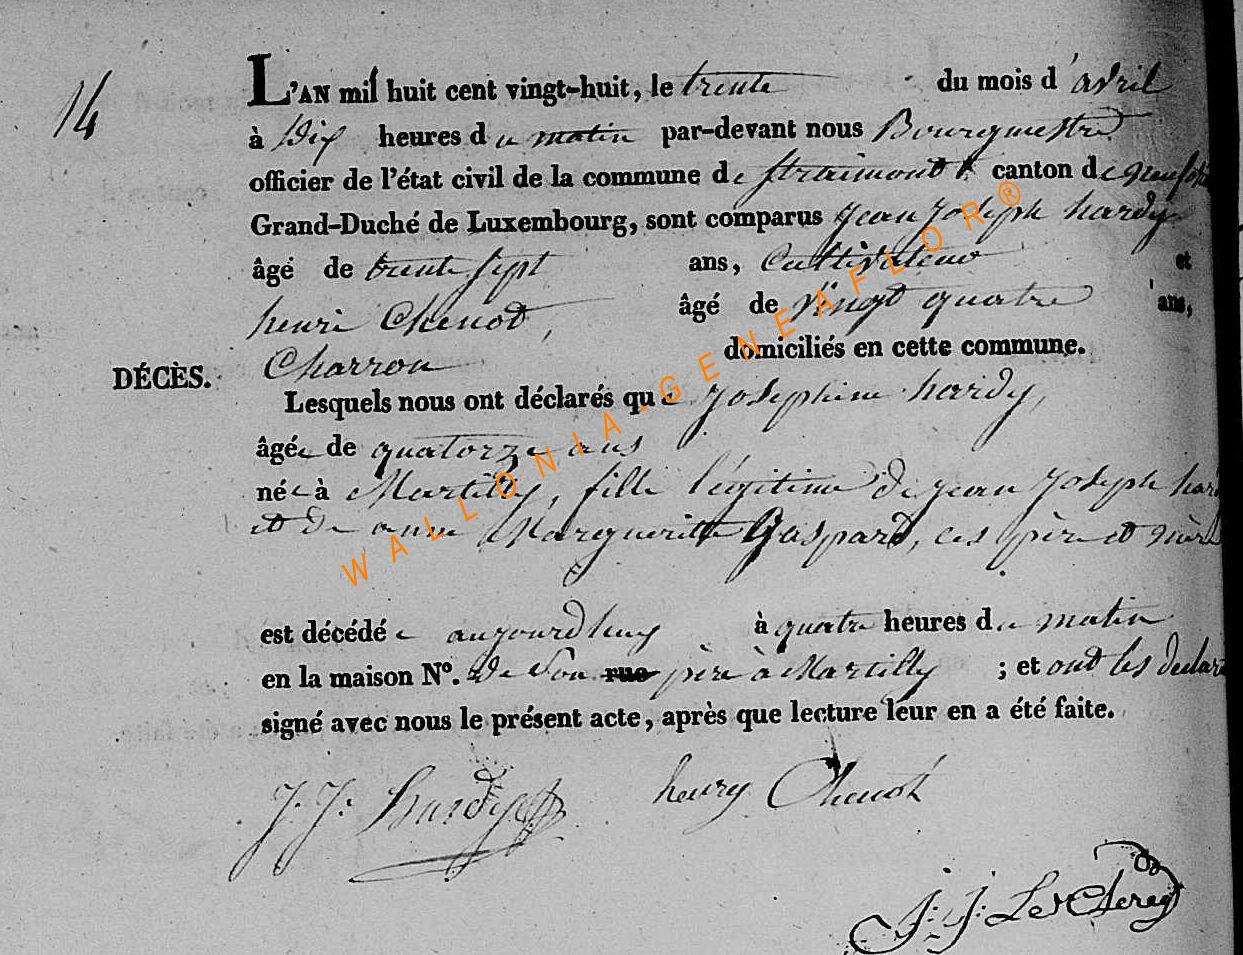 14
L'AN mil huit cent vingt-huit, le trente du mois d'avril
à Dix heures du matin par-devant nous Bourgmestre
officier de l'état civil de la commune de straimont canton de
Grand-Duché de Luxembourg, sont comparus jean joseph hardy
âgé de trente sept ans, Cultivateur et
henri Chenot, âgé de vingt quatre ans,
Charron domiciliés en cette commune.
DÉCÈS.
Lesquels nous ont déclarés que josephine hardy,
âgée de quatorze ans
née à Martilly, fille légitime de jean joseph
et de anne Marguerite Gaspard, ces père et mère
est décédée aujourdhuy à quatre heures du matin
en la maison Nº. de son rue père à Martilly ; et ont les
signé avec nous le présent acte, après que lecture leur en a été faite.
J. J. Hardy henry Chenot
J: J: Leclerc
WALLONIA-GENEAFLOR®